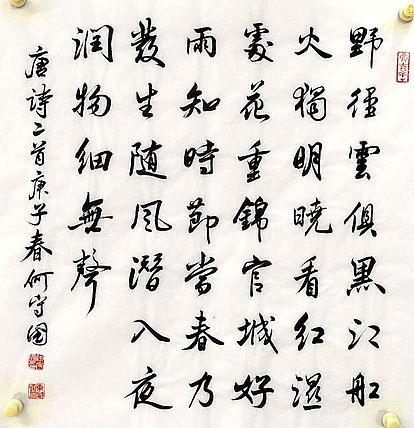 野徑雲俱黑江船
火獨明曉看紅濕
處花重錦官城好
雨知時節當春乃
發生随風潛入夜
润物細無聲
唐詩二首庚子春何守國